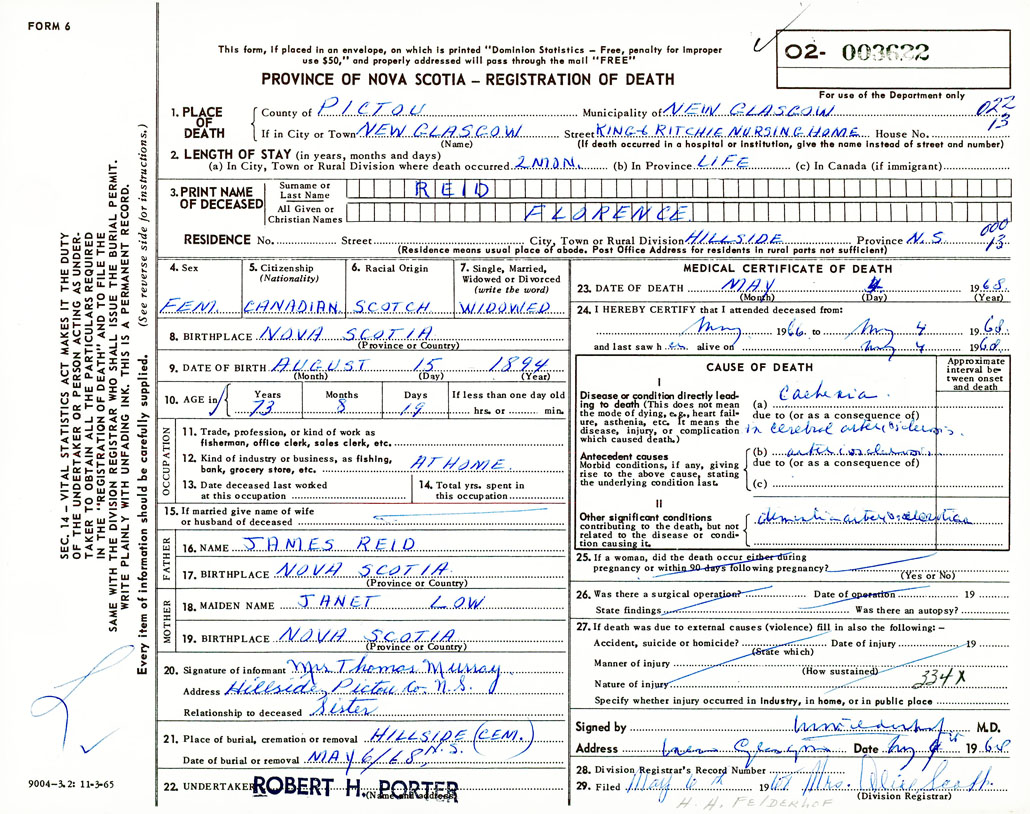 FORM 6
This form, if placed in an envelope, on which is printed "Dominion Statistics – Free, penalty for improper
use $50," and properly addressed will pass through the mail "FREE"
PROVINCE OF NOVA SCOTIA – REGISTRATION OF DEATH
O2- 003622
For use of the Department only
022
13
1. PLACE OF DEATH
County of PICTOU Municipality of NEW GLASGOW
If in City or Town NEW GLASGOW Street RITCHIE NURSING HOME House No.
(Name) (If death occurred in a hospital or institution, give the name instead of street and number)
2. LENGTH OF STAY (in years, months and days)
(a) In City, Town or Rural Division where death occurred 2 MON. (b) In Province LIFE (c) In Canada (if immigrant)
3. PRINT NAME OF DECEASED
Surname or Last Name REID
All Given or Christian Names FLORENCE
000
13
RESIDENCE No. Street City, Town or Rural Division HILLSIDE Province N.S.
(Residence means usual place of abode. Post Office Address for residents in rural parts not sufficient)
4. Sex
FEM.
5. Citizenship
(Nationality)
CANADIAN
6. Racial Origin
SCOTCH
7. Single, Married,
Widowed or Divorced
(write the word)
WIDOWED
8. BIRTHPLACE NOVA SCOTIA
(Province or Country)
9. DATE OF BIRTH AUGUST 15 1894
(Month) (Day) (Year)
10. AGE in
Years Months Days If less than one day old
73 8 19 hrs. or min.
OCCUPATION
11. Trade, profession, or kind of work as
fisherman, office clerk, sales clerk, etc.
12. Kind of industry or business, as fishing,
bank, grocery store, etc. AT HOME.
13. Date deceased last worked
at this occupation
14. Total yrs. spent in
this occupation
15. If married give name of wife
or husband of deceased
FATHER
16. NAME JAMES REID
17. BIRTHPLACE NOVA SCOTIA
(Province or Country)
MOTHER
18. MAIDEN NAME JANET LOW
19. BIRTHPLACE NOVA SCOTIA
(Province or Country)
20. Signature of informant Mrs Thomas Murray
Address Hillside, Pictou Co. N.S.
Relationship to deceased Sister
21. Place of burial, cremation or removal HILLSIDE (CEM.)
N.S.
Date of burial or removal MAY 6/68,
22. UNDERTAKER ROBERT H. PORTER
(Name and address)
MEDICAL CERTIFICATE OF DEATH
23. DATE OF DEATH MAY 4 1968
(Month) (Day) (Year)
24. I HEREBY CERTIFY that I attended deceased from:
May 1966 to May 4 1968
and last saw her alive on May 4 1968
CAUSE OF DEATH
Approximate
interval be-
tween onset
and death
I
Disease or condition directly lead-
ing to death (This does not mean
the mode of dying, e.g., heart fail-
ure, asthenia, etc. It means the
disease, injury, or complication
which caused death.)
(a) Cachexia
due to (or as a consequence of)
in cerebral arteriosclerosis.
Antecedent causes
Morbid conditions, if any, giving
rise to the above cause, stating
the underlying condition last.
(b) arteriosclerosis
due to (or as a consequence of)
(c)
II
Other significant conditions
contributing to the death, but not
related to the disease or condi-
tion causing it.
25. If a woman, did the death occur either during
pregnancy or within 90 days following pregnancy?
(Yes or No)
26. Was there a surgical operation? Date of operation 19
State findings Was there an autopsy?
27. If death was due to external causes (violence) fill in also the following: –
Accident, suicide or homicide? Date of injury 19
(State which)
Manner of injury
(How sustained)
Nature of injury 334X
Specify whether injury occurred in Industry, in home, or in public place
Signed by M.D.
Address New Glasgow Date May 1968
28. Division Registrar's Record Number
29. Filed May 6th 196 Mrs. Alice Scott
(Division Registrar)
H. H. FELDERHOF
SEC. 14 – VITAL STATISTICS ACT MAKES IT THE DUTY
OF THE UNDERTAKER OR PERSON ACTING AS UNDER-
TAKER TO OBTAIN ALL THE PARTICULARS REQUIRED
IN THE "REGISTRATION OF DEATH" AND TO FILE THE
SAME WITH THE DIVISION REGISTRAR WHO SHALL ISSUE THE BURIAL PERMIT.
WRITE PLAINLY WITH UNFADING INK. THIS IS A PERMANENT RECORD.
Every item of information should be carefully supplied. (See reverse side for instructions.)
9004–3.2: 11-3-65